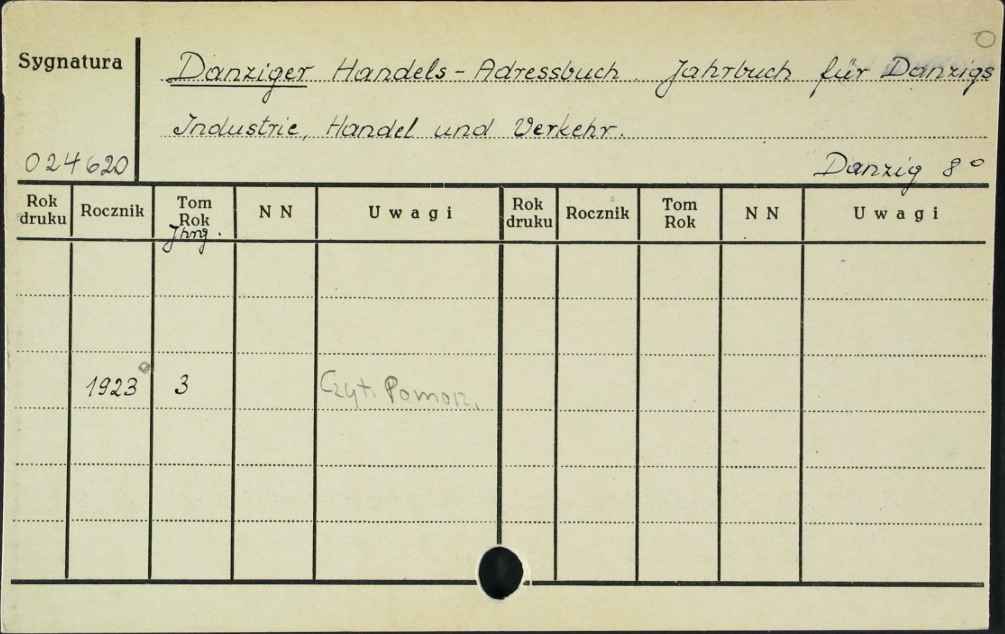 Sygnatura
Danziger Handels-Adressbuch. Jahrbuch für Danzigs
Industrie, Handel und Verkehr.
024620
Danzig 8°
Rok druku Rocznik Tom Rok NN Uwagi Rok druku Rocznik Tom Rok NN Uwagi
Jhrg.
1923 3 Czyt. Pomorz.